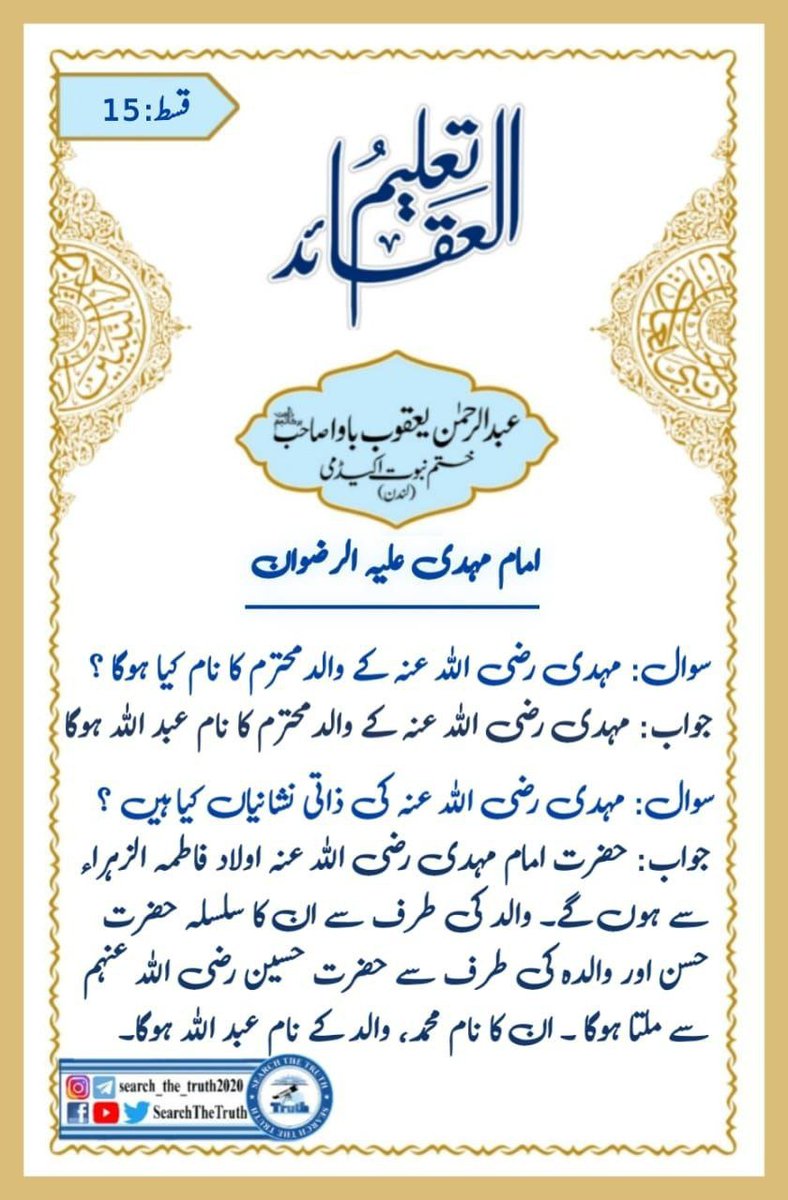 قسط:15
تعلیمُ العقائد
عبدالرحمٰن یعقوب باوا صاحب
ختم نبوت اکیڈمی
(لندن)
امام مہدی علیہ الرضوان
سوال: مہدی رضی اللہ عنہ کے والد محترم کا نام کیا ہوگا ؟
جواب: مہدی رضی اللہ عنہ کے والد محترم کا نام عبد اللہ ہوگا
سوال: مہدی رضی اللہ عنہ کی ذاتی نشانیاں کیا ہیں ؟
جواب: حضرت امام مہدی رضی اللہ عنہ اولاد فاطمہ الزہراء
سے ہوں گے۔ والد کی طرف سے ان کا سلسلہ حضرت
حسن اور والدہ کی طرف سے حضرت حسین رضی اللہ عنہم
سے ملتا ہوگا ۔ ان کا نام محمد، والد کے نام عبد اللہ ہوگا۔
search_the_truth2020
SearchTheTruth
SEARCH THE TRUTH
Truth
SEARCH THE TRUTH